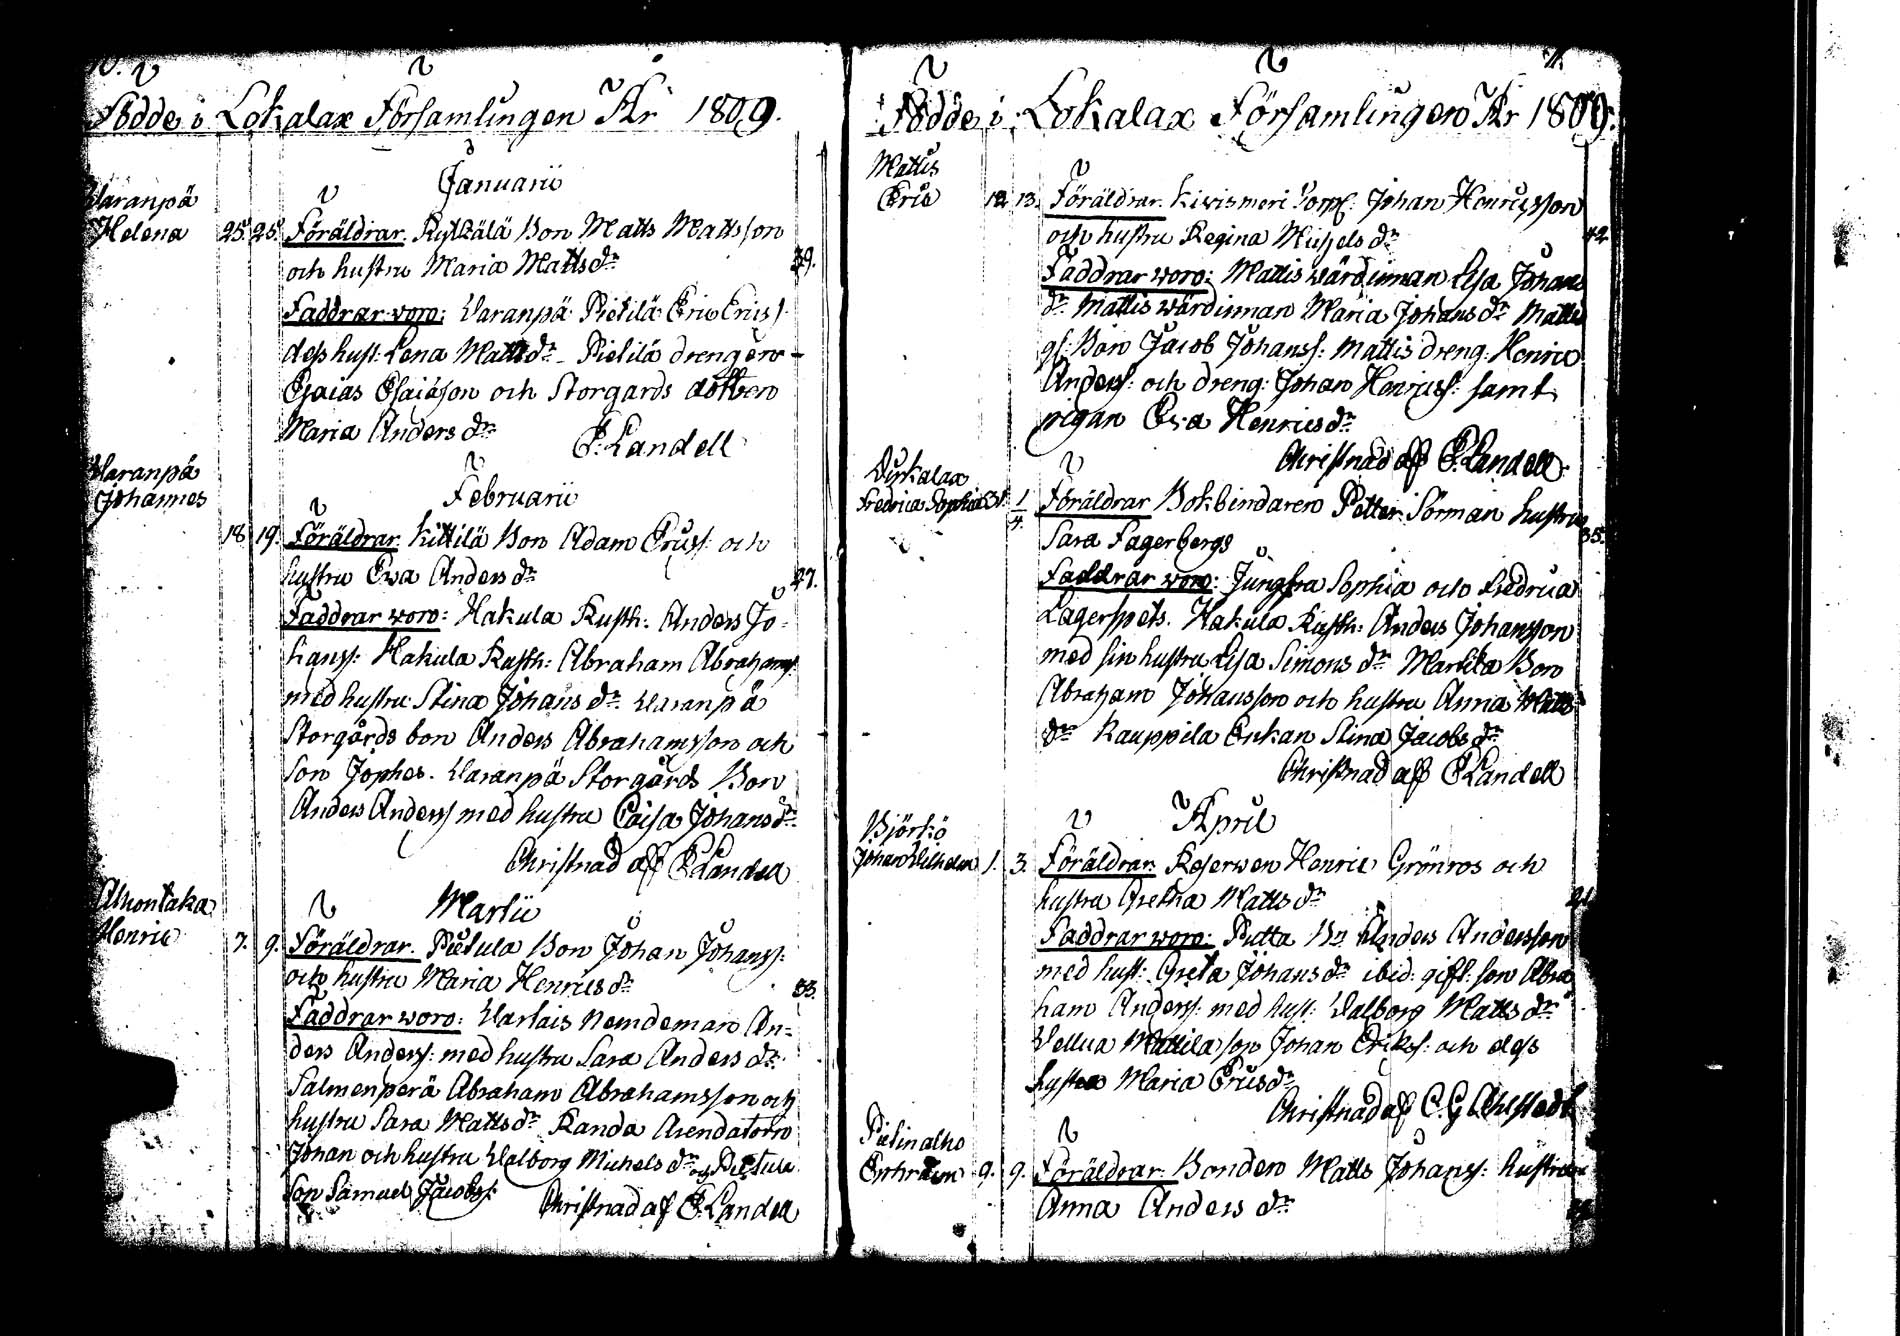 10.
Födde i Lokalax Församlingen År 1809.
Januarii
Waranpä
Helena 25. 25. Föräldrar. Rytkälä Bon Matts Mattsson
och hustru Maria Matts dr 39.
Faddrar woro: Waranpä Pietilä Eric Erics s.
dess hust: Lena Matts dr Pietilä drengen
Esaias Esaiasson och Storgårds dottren
Maria Anders dr
E. Landell
Februarii
Waranpä
Johannes
18 19. Föräldrar. Kittilä Bon Adam Erics s: och
hustru Ewa Anders dr 27.
Faddrar woro: Hakula Rusth: Anders Jo-
hans s: Hakula Rusth: Abraham Abrahams s
med hustru Stina Johans dr Waranpä
Storgårds bon Anders Abrahamsson och
son Jophes. Waranpä Storgårds Bon
Anders Anders s med hustru Caisa Johans dr
Christnad aff E Landell
Martii
Ahontaka
Henric 7. 9. Föräldrar. Pietula Bon Johan Johans s:
och hustru Maria Henrics dr 33.
Faddrar woro: Warlais Nemdeman An-
ders Anders s: med hustru Sara Anders dr
Salmenperä Abraham Abrahamsson och
hustru Sara Matts dr Randa Arendatorn
Johan och hustru Walborg Michels dr och Pietula
Son Samuel Jacobs s: Christnad af E. Landell
11.
Födde i Lokalax Församlingen År 1809.
Mattis
Eric 12 13. Föräldrar. Kivismeri Torp: Johan Henricsson
och hustru Regina Michels dr 42
Faddrar woro: Mattis wärdinnan Lisa Johans
dr Mattis wärdinnan Maria Johans dr Mattis
gl: Bon Jacob Johans s: Mattis dreng: Henric
Anders s: och dreng: Johan Henrics s: samt
pigan Eva Henrics dr
Christnad aff E. Landell
Dyrkalax
Fredrica Sophia 31. 1/4. Föräldrar Bokbindaren Petter Sörman hustru
Sara Fagerbergs 35.
Faddrar woro: Jungfra Sophia och Fredrica
Lagerspets. Hakula Rusth: Anders Johansson
med sin hustru Lisa Simons dr Marttila Bon
Abraham Johansson och hustru Anna Matts
dr Kauppila Enkan Stina Jacobs dr
Christnad aff E Landell
April
Björkö
Johan Wilhelm 1. 3. Föräldrar. Reserven Henric Grönros och
hustru Gretha Matts dr 21
Faddrar woro: Putta Bn Anders Andersson
med hust: Greta Johans dr ibid: gift son Abra
ham Anders s: med hust: Walborg Matts dr
Vellua Mattila son Johan Eriks s: och dess
hustru Maria Erics dr
Christnad aff C. G Ahlstedt
Pielinalho
Enhraim 9. 9. Föräldrar: Bonden Matts Johans s: hustru
Anna Anders dr